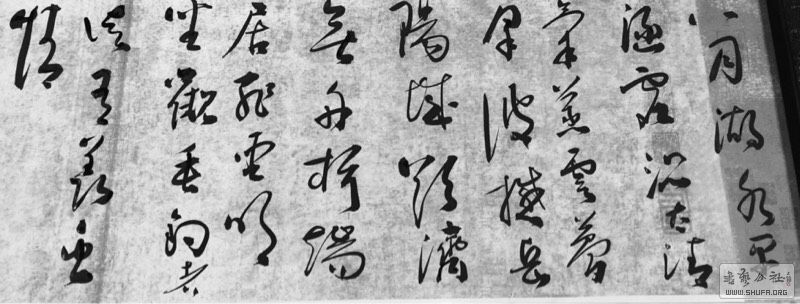 八月湖水平
涵虛混太清
氣蒸雲夢
澤波撼岳
陽城欲濟
無舟楫端
居恥聖明
坐觀垂釣者
徒有羨魚
情
書藝公社
WWW.SHUFA.ORG